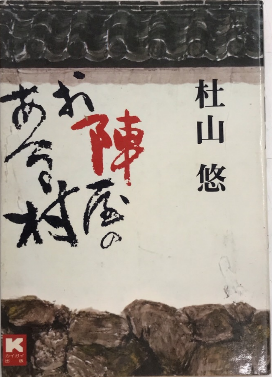 杜山 悠
お陣屋の
ある村
K